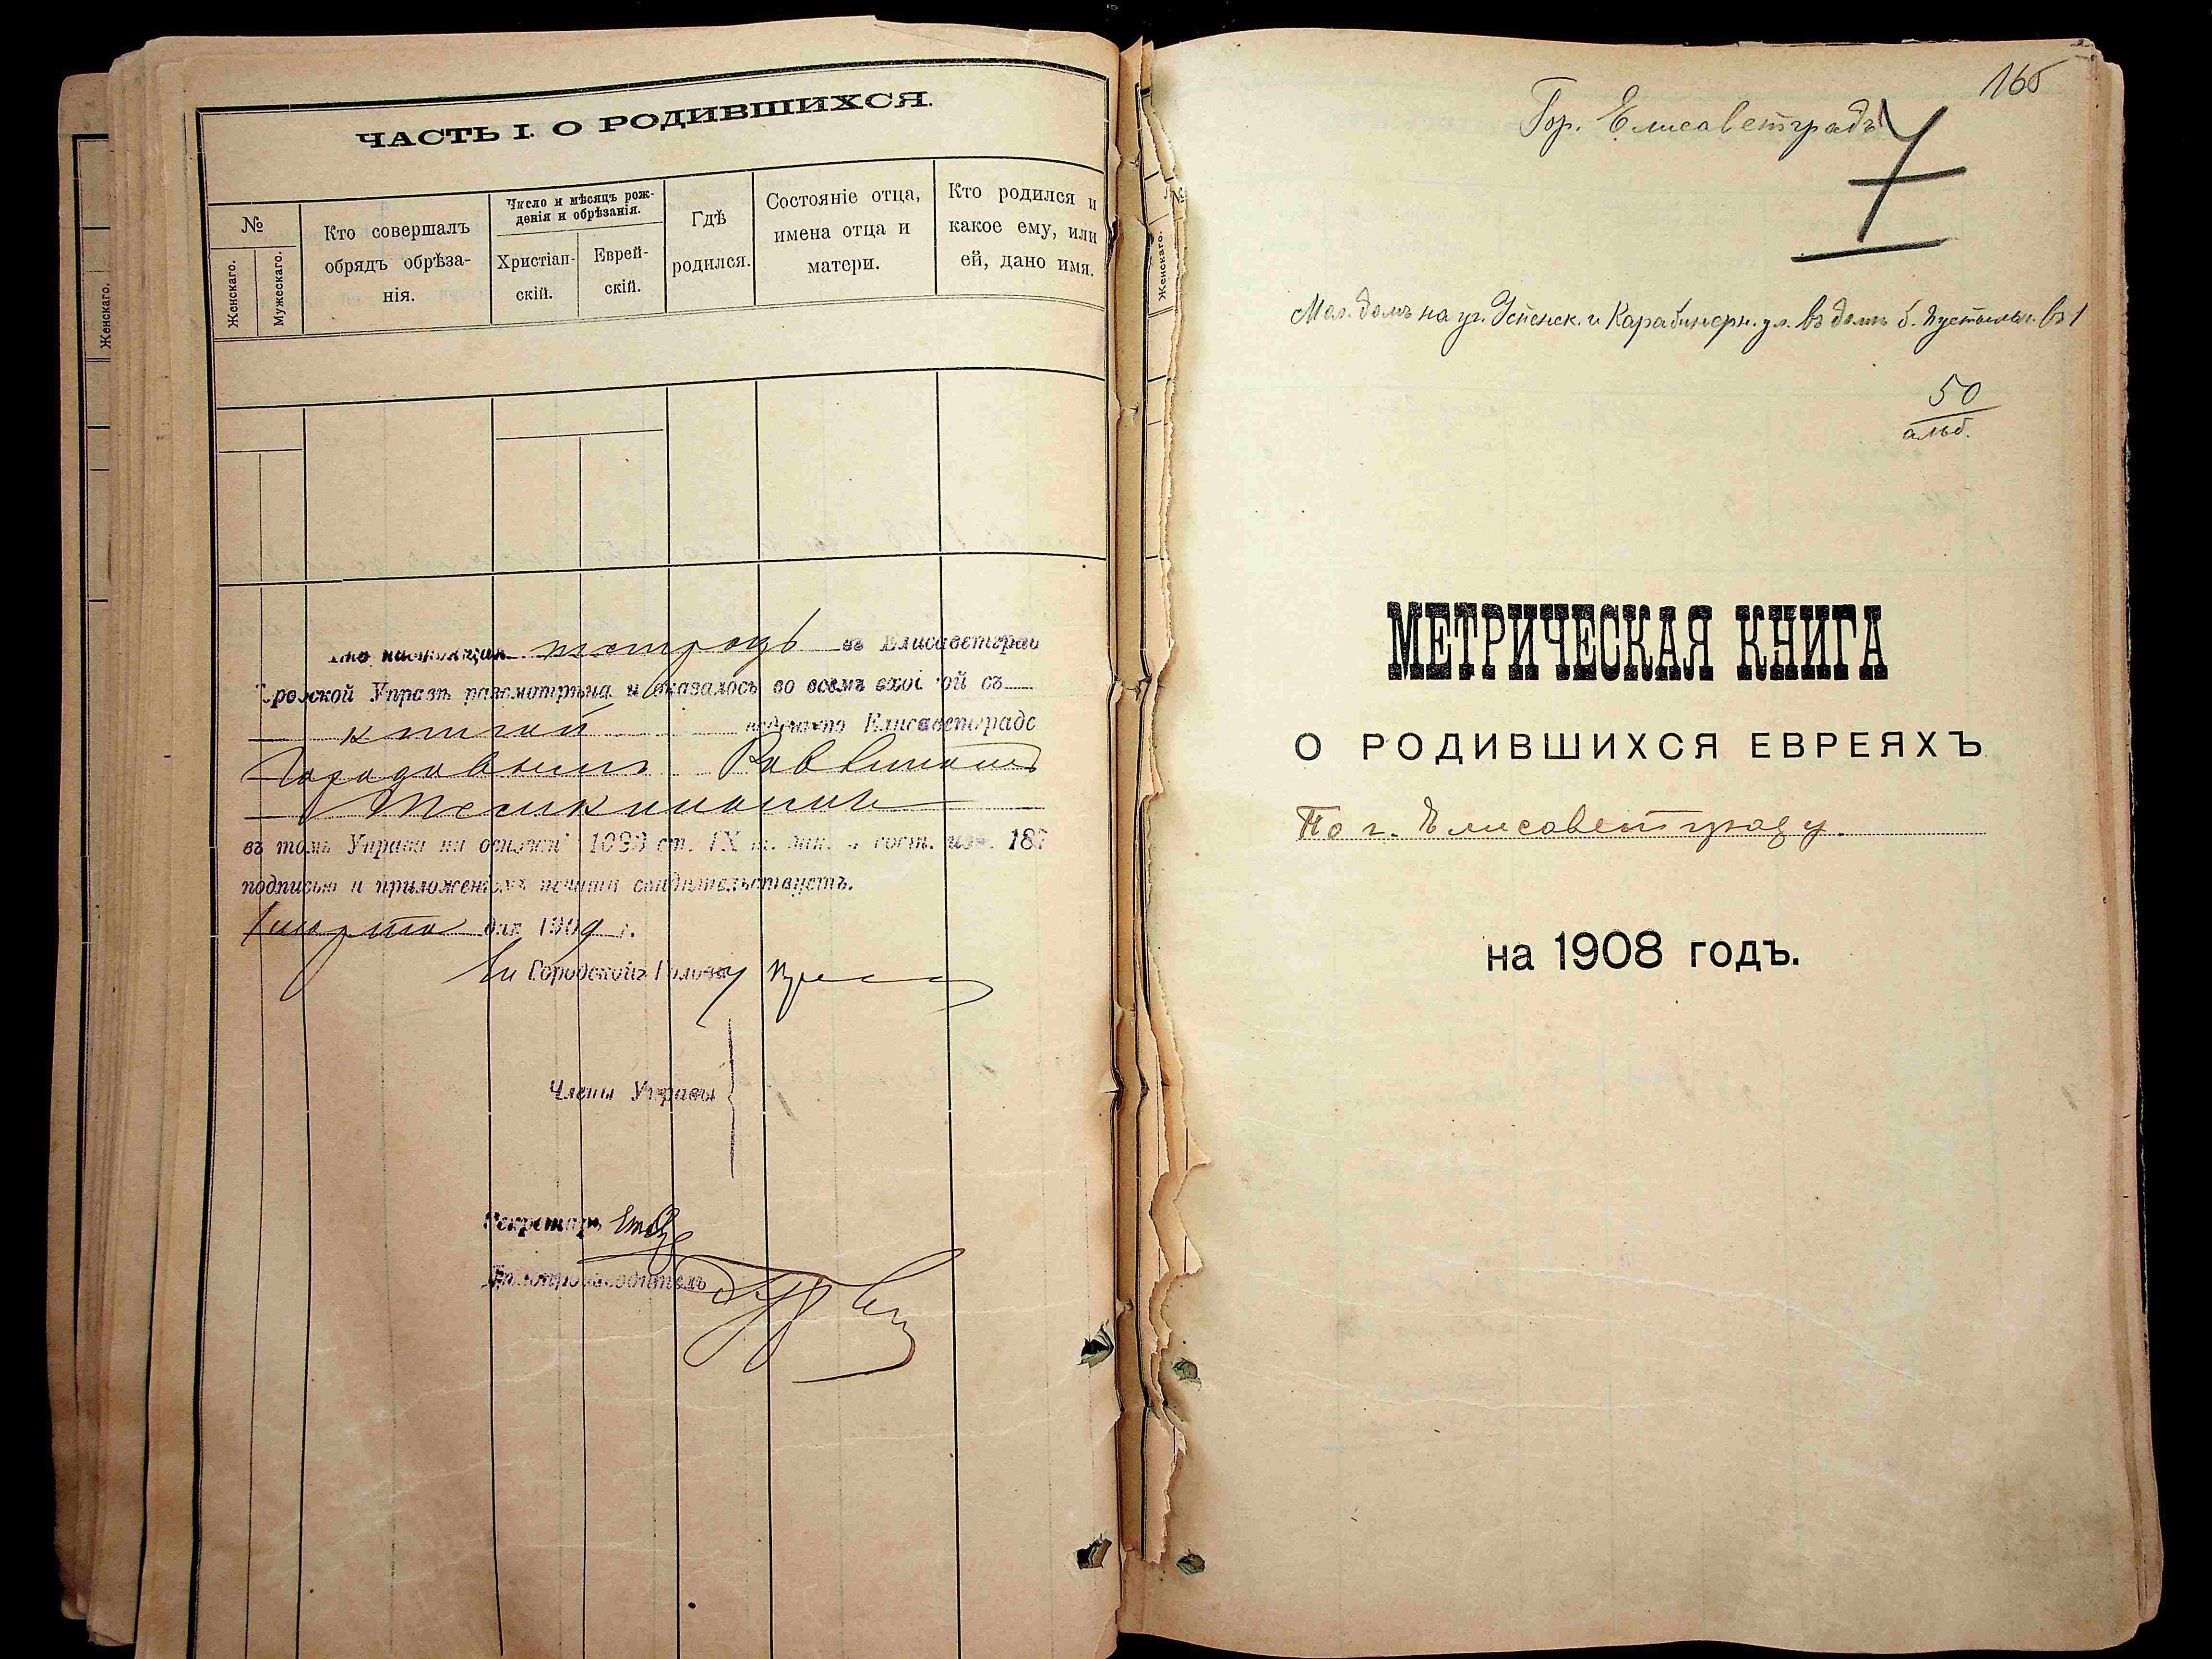 ЧАСТЬ I. О РОДИВШИХСЯ.
№
Женскаго.
Мужескаго.
Кто совершалъ
обрядъ обрѣза-
нія.
Число и мѣсяцъ рож-
денія и обрѣзанія.
Христіан-
скій.
Еврей-
скій.
Гдѣ
родился.
Состояніе отца,
имена отца и
матери.
Кто родился и
какое ему, или
ей, дано имя.
Женскаго.
тетрадь въ Елисаветград
Городской Управѣ разсмотрѣна и оказалось во всемъ сход ой съ
книгой веденною Елисаветградс
Городовымъ Раввиномъ
въ томъ Управа на основан 1093 ст. IX т. зак. о сост. изд. 187
подписью и приложеніемъ печати свидѣтельствуетъ.
марта дня 1909 г.
Городской Голова
Члены Управы
Секретарь
Дѣлопроизводитель
165
Гор. Елисаветградъ
7
Мол. домъ на уг. Успенск. и Карабинерн. ул. въ домѣ б.
50
альб.
№
Женскаго.
МЕТРИЧЕСКАЯ КНИГА
О РОДИВШИХСЯ ЕВРЕЯХЪ
По г. Елисаветграду.
на 1908 годъ.